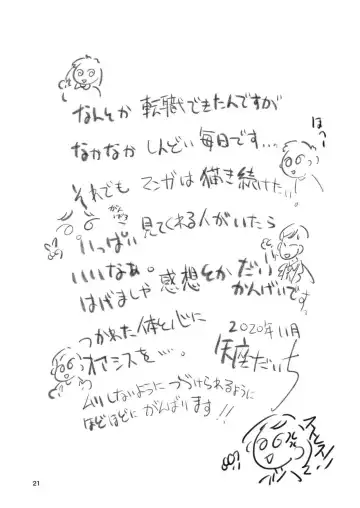 なんとか転職できたんですが
なかなかしんどい毎日です…。
はー
それでもマンガは描き続けたい。
がんがん
いっぱい見てくれる人がいたら
いいなぁ。感想とかだい
はげましや かんげいです。
つかれた体と心に
オアシスを…。
2020年11月
座だいち
ムリしないようにつづけられるように
ほどほどにがんばります!!
21